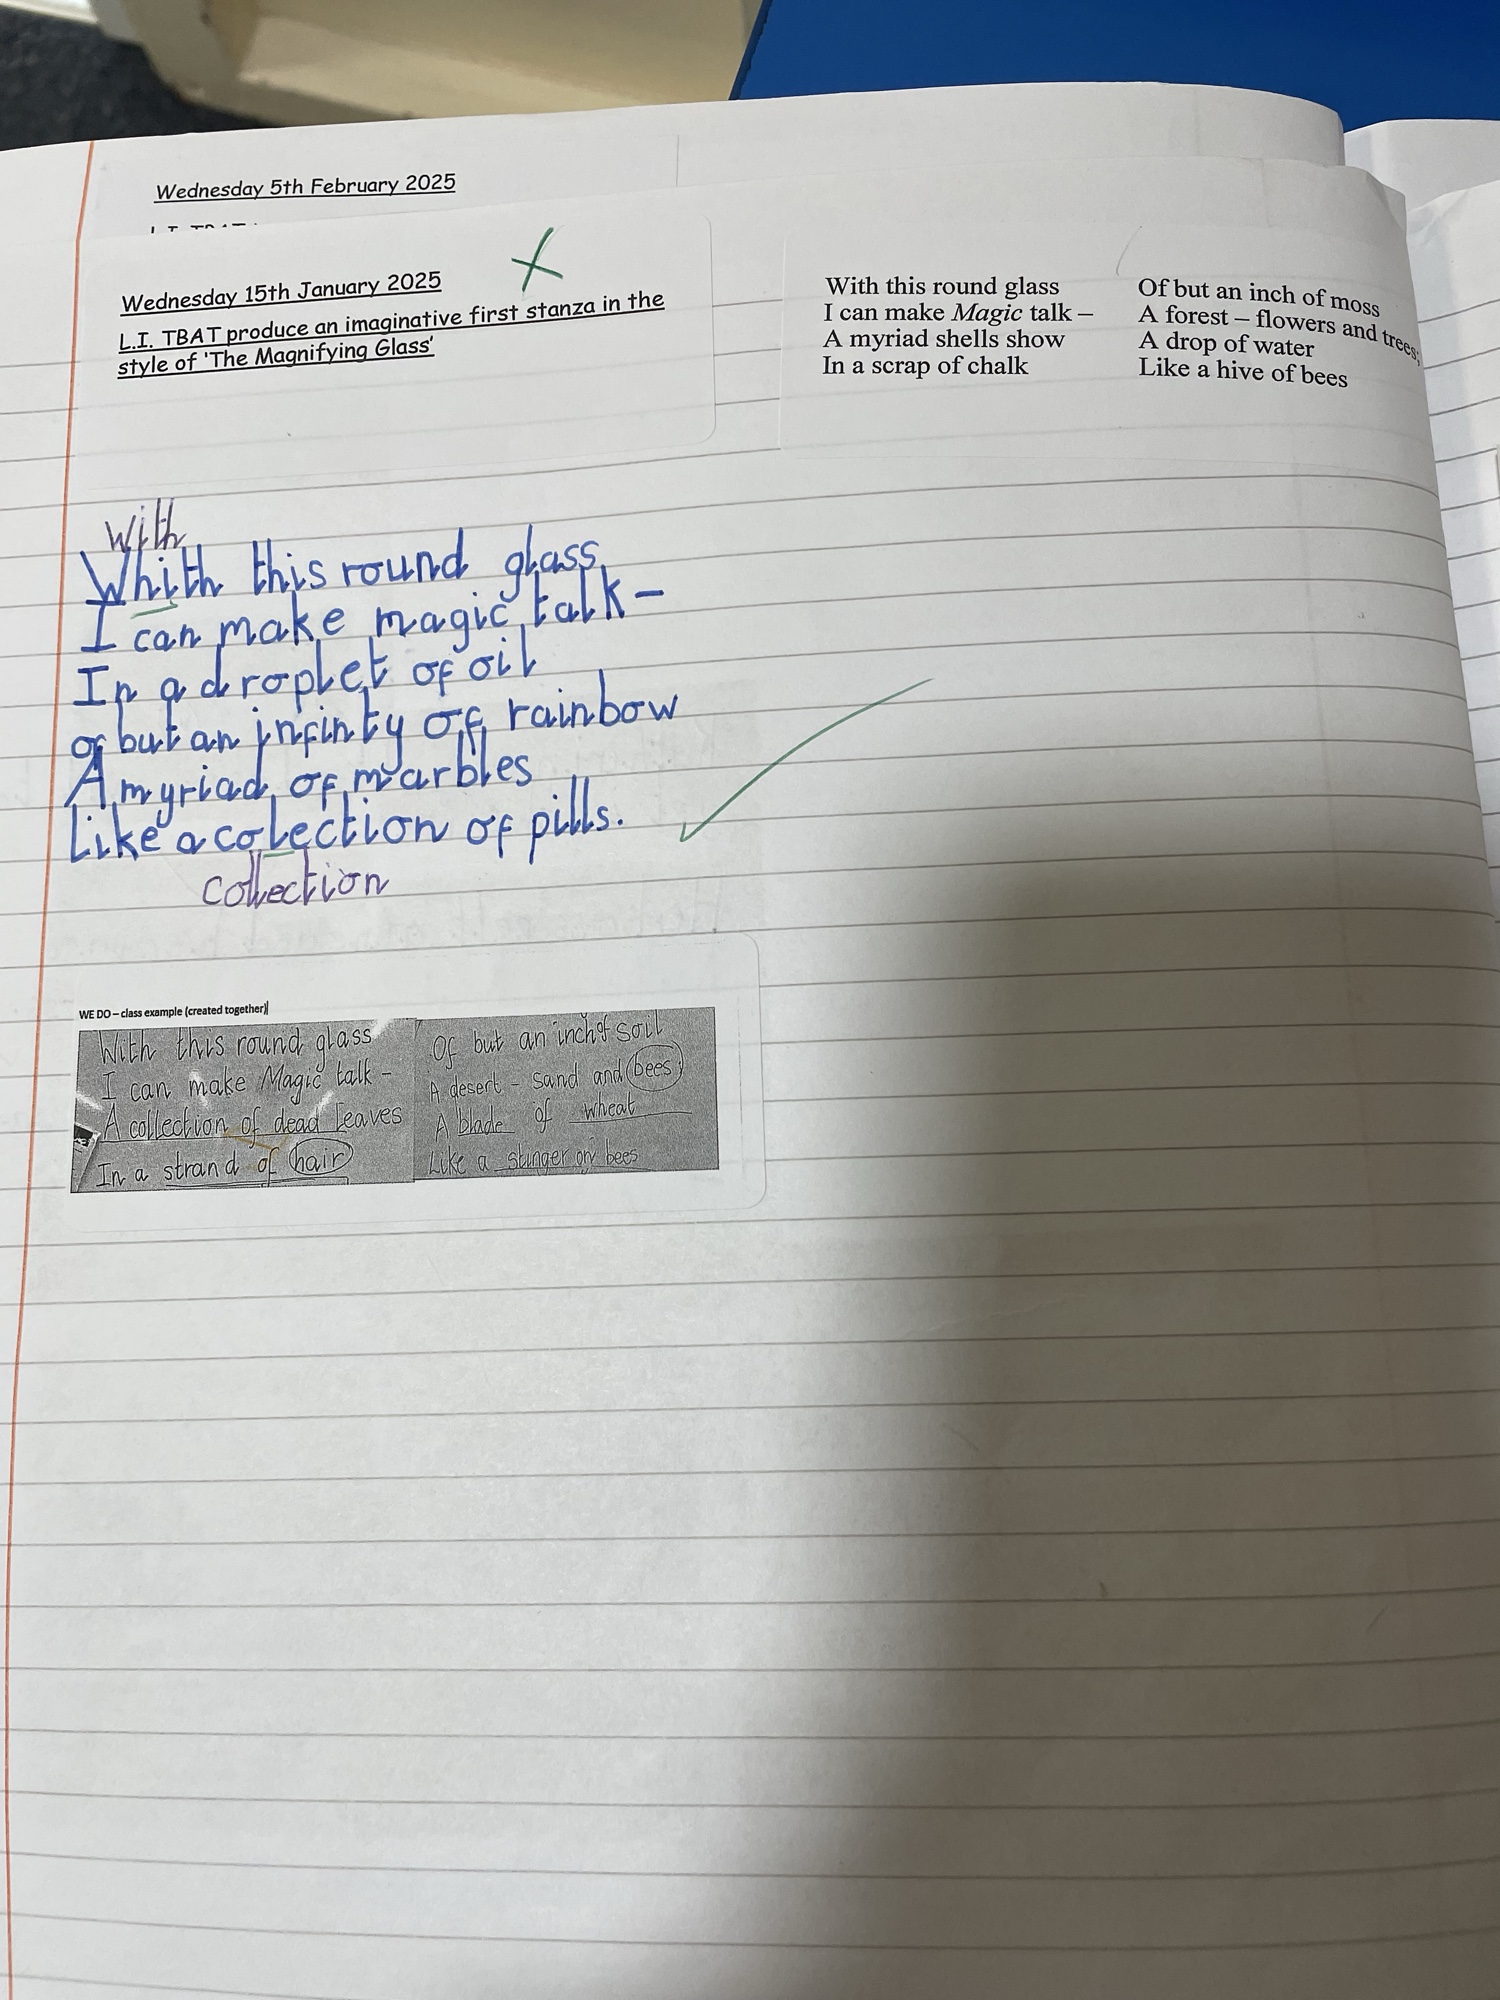 Wednesday 5th February 2025
Wednesday 15th January 2025
L.I. TBAT produce an imaginative first stanza in the
style of 'The Magnifying Glass'
With this round glass
I can make Magic talk –
A myriad shells show
In a scrap of chalk
Of but an inch of moss
A forest – flowers and trees;
A drop of water
Like a hive of bees
With
Whith this round glass
I can make magic talk –
In a droplet of oil
of but an infinty of rainbow
A myriad of marbles
Like a colection of pills.
collection
WE DO – class example (created together)
With this round glass
I can make Magic talk –
A collection of dead leaves
In a strand of hair
Of but an inch of soil
A desert – sand and bees;
A blade of wheat
Like a stinger on bees